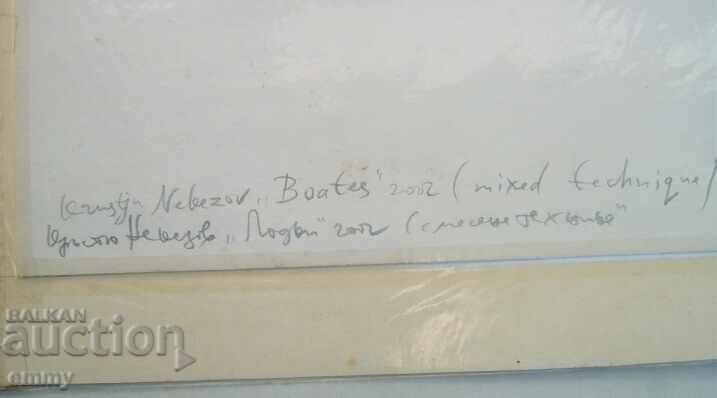 Krustju Nebezov „Boates" 2002 (mixed technique)
Кръстю Небезов „Лодки" 2002 (смесена техника"
BALKAN
auction
emmy